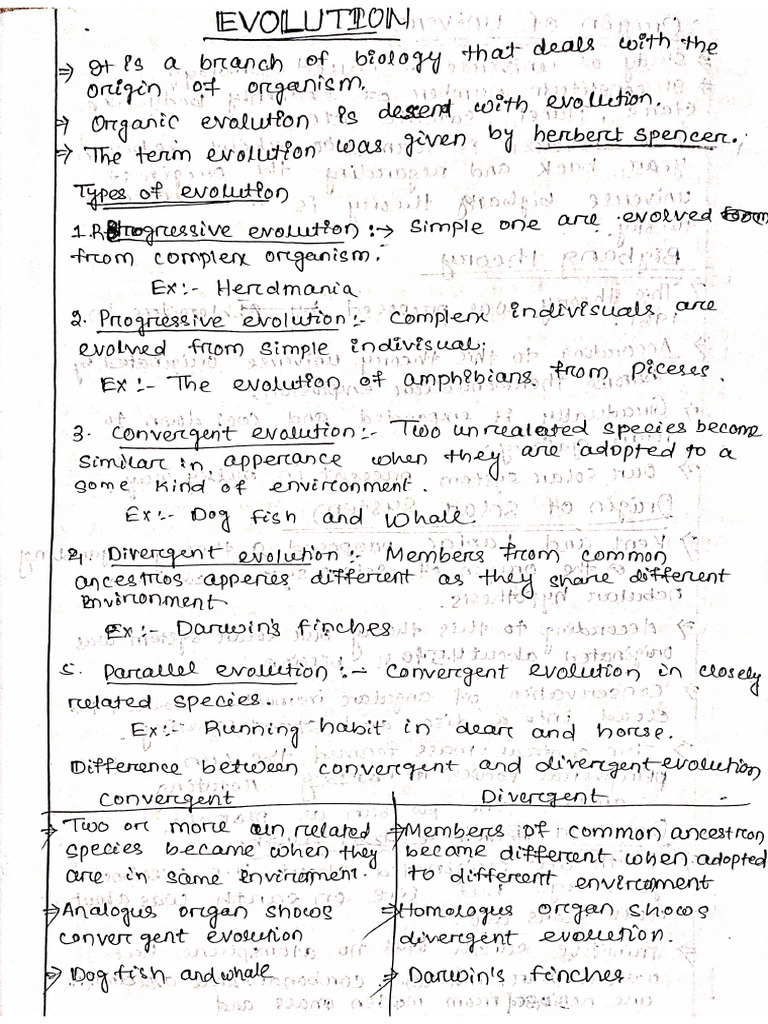 EVOLUTION
⇒ It is a branch of biology that deals with the
origin of organism.
⇒ Organic evolution is descent with evolution.
⇒ The term evolution was given by herbert spencer.
Types of evolution
1. Retrogressive evolution :→ simple one are evolved
from complex organism.
Ex:- Herdmania
2. Progressive evolution:- complex indivisuals are
evolved from simple indivisual.
Ex:- The evolution of amphibians from Pieceses.
3. convergent evolution:- Two unrealated species become
similar in apperance when they are adopted to a
some kind of environment.
Ex:- Dog fish and whale
4. Divergent evolution:- Members from common
ancestrios apperies different as they share different
Environment
Ex:- Darwin's finches
5. Parallel evolution:- convergent evolution in closely
related species.
Ex:- Running habit in dear and horse.
Difference between convergent and divergent evolution
convergent
Divergent
⇒ Two or more un related
species became when they
are in same environment.
⇒ Analogus organ shows
convergent evolution
⇒ Dog fish and whale
⇒ Members of common ancestron
became different when adopted
to different environment
⇒ Homologus organ shows
divergent evolution.
⇒ Darwin's finches